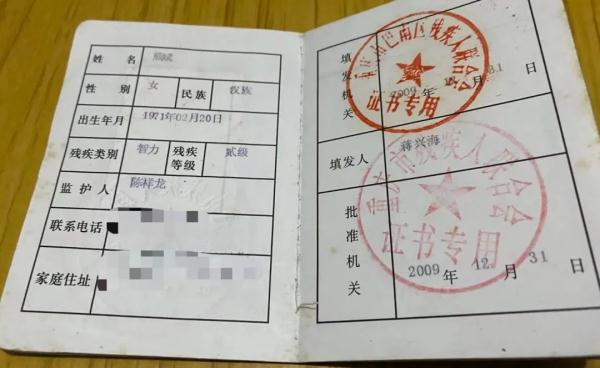 姓 名 熊斌
性 别 女 民族 汉族
出生年月 1971年02月20日
残疾类别 智力 残疾等级 贰级
监护人 陈祥龙
联系电话
家庭住址
填发机关
巴南区残疾人联合会
证书专用
2009年 12月31日
填发人 蒋兴海
批准机关
重庆市残疾人联合会
证书专用
2009年 12月 31日